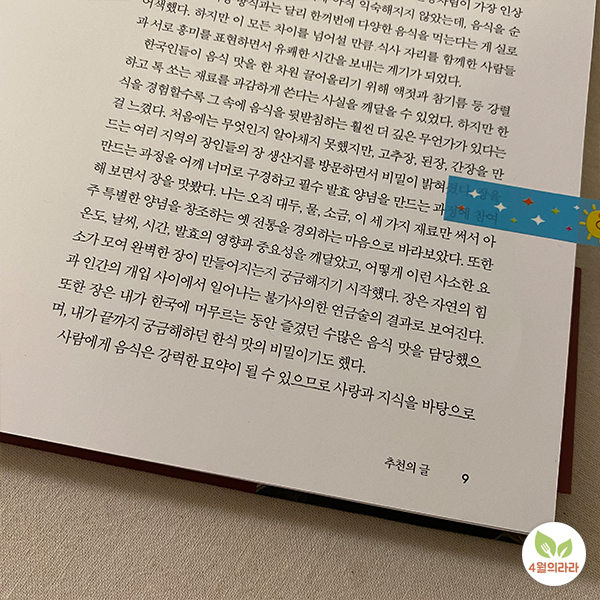 어색했다. 하지만 이 모든 차이를 넘어설 만큼 식사 자리를 함께한 사람들
과 서로 흥미를 표현하면서 유쾌한 시간을 보내는 계기가 되었다.
한국인들이 음식 맛을 한 차원 끌어올리기 위해 액젓과 참기름 등 강렬
하고 톡 쏘는 재료를 과감하게 쓴다는 사실을 깨달을 수 있었다. 하지만 한
식을 경험할수록 그 속에 음식을 뒷받침하는 훨씬 더 깊은 무언가가 있다는
걸 느꼈다. 처음에는 무엇인지 알아채지 못했지만, 고추장, 된장, 간장을 만
드는 여러 지역의 장인들의 장 생산지를 방문하면서 비밀이 밝혀졌다. 장을
만드는 과정을 어깨 너머로 구경하고 필수 발효 양념을 만드는 과정에 참여
해 보면서 장을 맛봤다. 나는 오직 대두, 물, 소금, 이 세 가지 재료만 써서 아
주 특별한 양념을 창조하는 옛 전통을 경외하는 마음으로 바라보았다. 또한
온도, 날씨, 시간, 발효의 영향과 중요성을 깨달았고, 어떻게 이런 사소한 요
소가 모여 완벽한 장이 만들어지는지 궁금해지기 시작했다. 장은 자연의 힘
과 인간의 개입 사이에서 일어나는 불가사의한 연금술의 결과로 보여진다.
또한 장은 내가 한국에 머무르는 동안 즐겼던 수많은 음식 맛을 담당했으
며, 내가 끝까지 궁금해하던 한식 맛의 비밀이기도 했다.
사람에게 음식은 강력한 묘약이 될 수 있으므로 사랑과 지식을 바탕으로
추천의 글 9
4월의라라